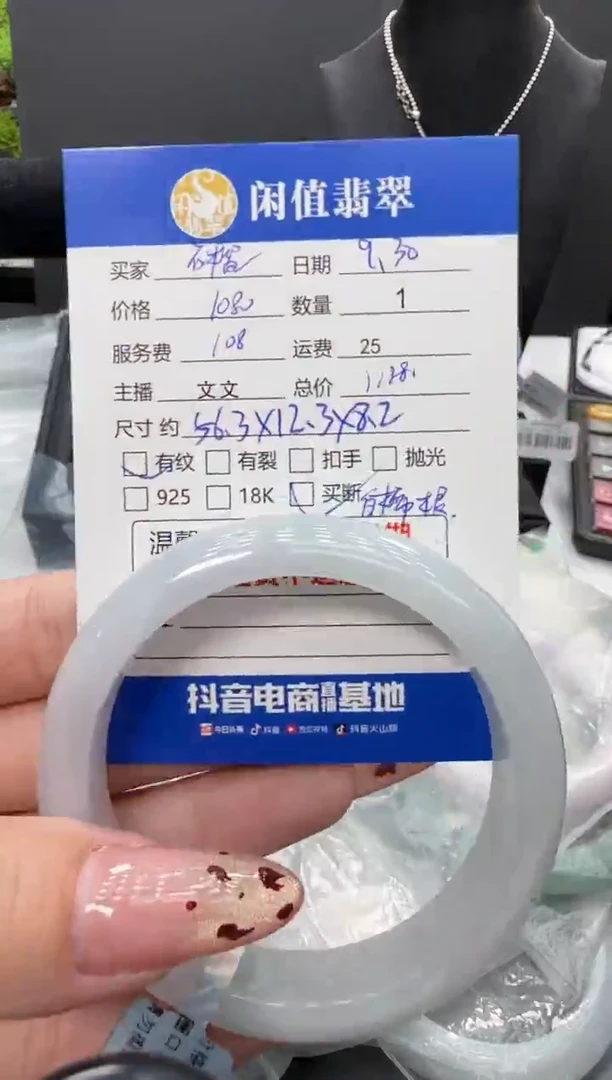 闲值翡翠
买家 日期 9.30
价格 1080 数量 1
服务费 108 运费 25
主播 文文 总价
尺寸约 56.3X12.3X8.2
有纹 有裂 扣手 抛光
925 18K 买断
温馨
抖音电商直播基地
今日头条 抖音 西瓜视频 抖音火山版